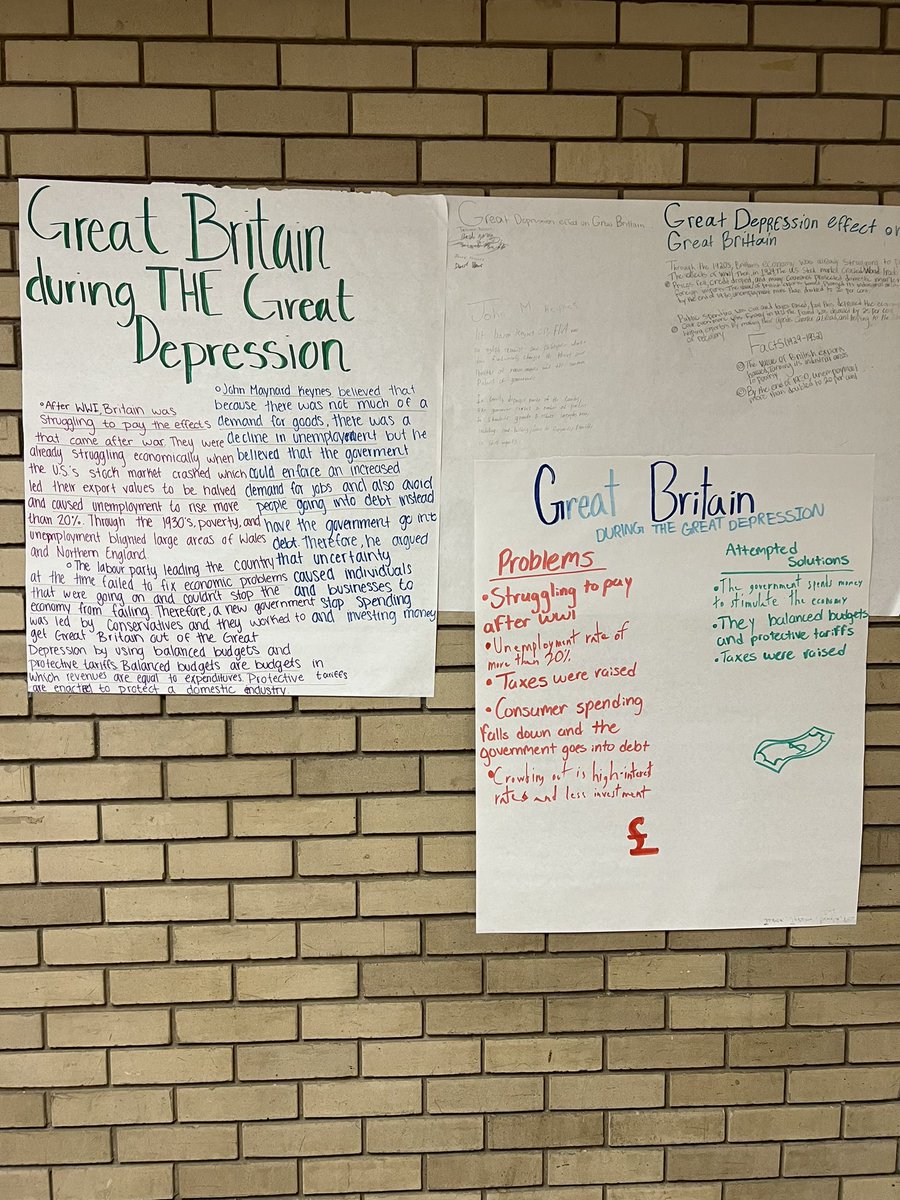 Great Britain
during THE Great
Depression
• After WWI, Britain was
struggling to pay the effects
that came after war. They were
already struggling economically when
the U.S.'s stock market crashed which
led their export values to be halved
and caused unemployment to rise more
than 20%. Through the 1930's, poverty, and
unemployment blighned large areas of Wales
and Northern England
• The labour party leading the country
at the time failed to fix economic problems
that were going on and couldn't stop the
economy from failing. Therefore, a new government
was led by Conservatives and they worked to
get Great Britain out of the Great
Depression by using balanced budgets and
protective tariffs. Balanced budgets are budgets in
which revenues are equal to expenditures. Protective tariffs
are enacted to protect a domestic industry.
• John Maynard Keynes believed that
because there was not much of a
demand for goods, there was a
decline in unemployment but he
believed that the goverment
could enforce an increased
demand for jobs and also avoid
people going into debt instead
have the government go into
debt. Therefore, he argued
that uncertainty
caused individuals
and businesses to
stop spending
and investing money
Great Depression effect on Great Brittain
John M. Keynes
Great Depression effect on
Great Brittain
Through the 1920s, Britain's economy was already struggling to
The effects of WWI. Then, in 1929 The US stock market crashed. World
Prices fell, credit dropped, and many countries protected domestic
by the end of 1930, unemployment more than doubled to 20 per cent
Public spending was cut and taxes raised, but this depressed the
of recovery
Facts (1929-1932)
• The value of British exports
halved, turning its industrial areas
to poverty
• By the end of 1930, unemployment
more than doubled to 20 per cent
Great Britain
DURING THE GREAT DEPRESSION
Problems
• Struggling to pay
after WWI
• Unemployment rate of
more than 20%
• Taxes were raised
• Consumer spending
falls down and the
government goes into debt
• Crowding out is high-interest
rates and less investment
£
Attempted
Solutions
• The government spends money
to stimulate the economy
• They balanced budgets
and protective tariffs
• Taxes were raised